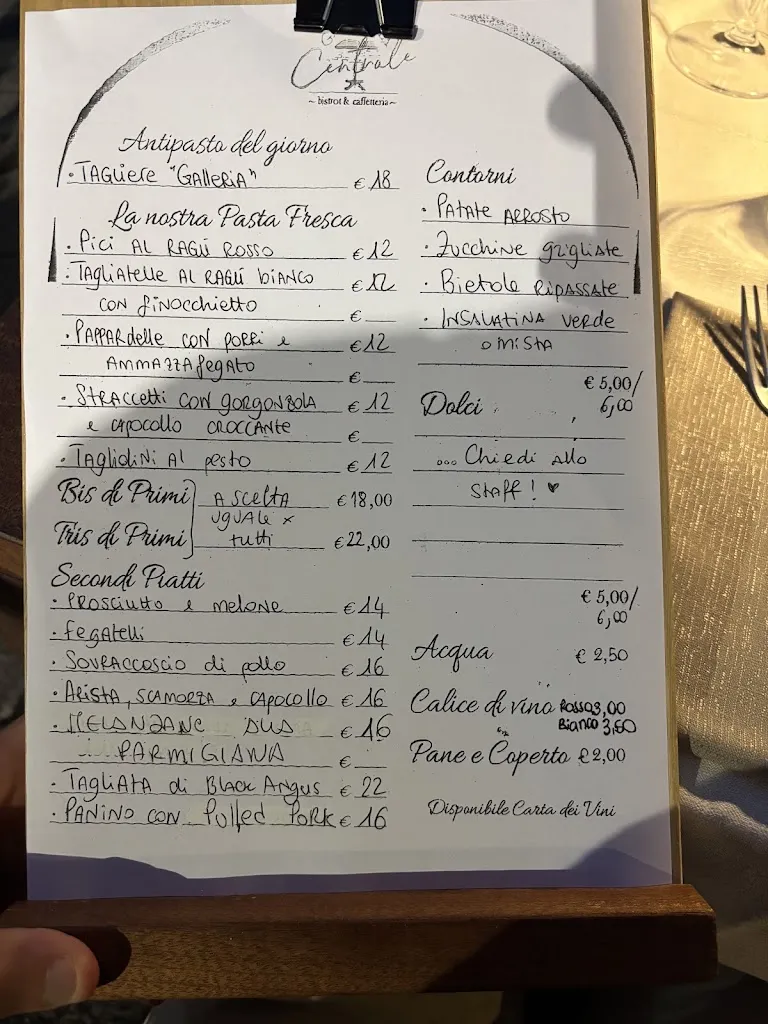 Centrale
~ bistrot & caffetteria ~
Antipasto del giorno
· TAGLIERE "GALLERIA" € 18
La nostra Pasta Fresca
· PICI AL RAGÙ ROSSO € 12
· TAGLIATELLE AL RAGÙ BIANCO € 12
CON FINOCCHIETTO €
· PAPPARDELLE CON PORRI e € 12
AMMAZZAFEGATO €
· STRACCETTI CON GORGONZOLA € 12
e CAPOCOLLO CROCCANTE €
· TAGLIOLINI AL PESTO € 12
Bis di Primi A SCELTA € 18,00
UGUALE X
Tris di Primi TUTTI € 22,00
Secondi Piatti
· PROSCIUTTO e MELONE € 14
· FEGATELLI € 14
· SOVRACCOSCIO di pollo € 16
· ARISTA, SCAMORZA e CAPOCOLLO € 16
· MELANZANE ALLA € 16
PARMIGIANA €
· TAGLIATA di BLACK ANGUS € 22
· PANINO CON PULLED PORK € 16
Contorni
· PATATE ARROSTO
· Zucchine grigliate
· Bietola RIPASSATE
· INSALATINA VERDE
O MISTA
€ 5,00/
6,00
Dolci
... Chiedi Allo
STAFF! ♥
€ 5,00/
6,00
Acqua € 2,50
Calice di vino Rosso 3,00
Bianco 3,50
Pane e Coperto € 2,00
Disponibile Carta dei Vini